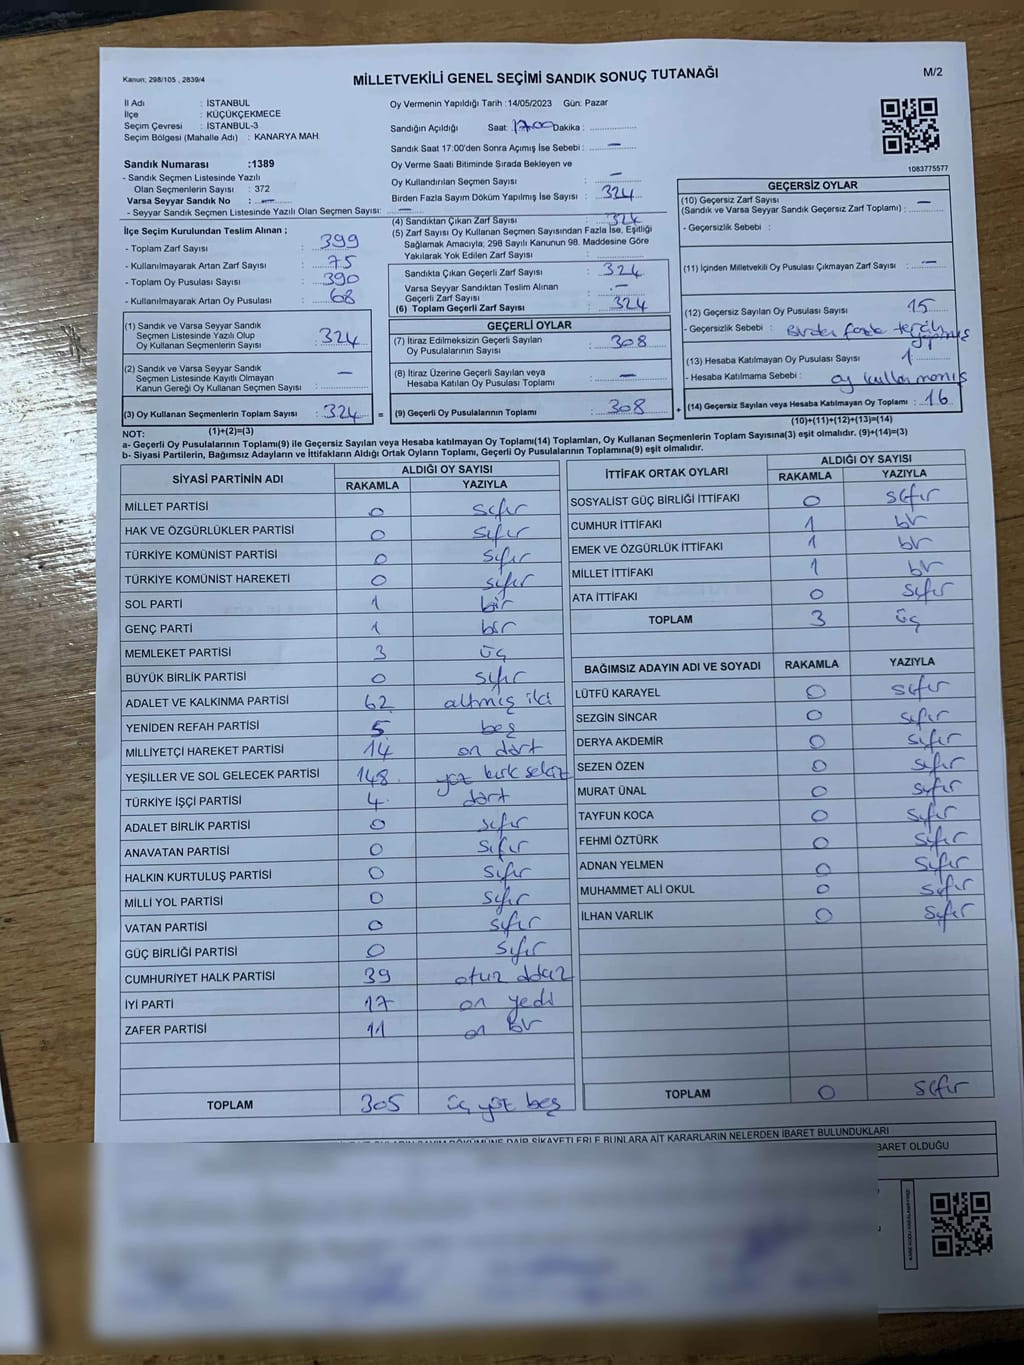 Kanun: 298/105 , 2839/4
MİLLETVEKİLİ GENEL SEÇİMİ SANDIK SONUÇ TUTANAĞI
M/2
İl Adı : İSTANBUL
İlçe : KÜÇÜKÇEKMECE
Seçim Çevresi : İSTANBUL-3
Seçim Bölgesi (Mahalle Adı) : KANARYA MAH.
Sandık Numarası :1389
- Sandık Seçmen Listesinde Yazılı
Olan Seçmenlerin Sayısı : 372
Varsa Seyyar Sandık No : —
- Seyyar Sandık Seçmen Listesinde Yazılı Olan Seçmen Sayısı: —
İlçe Seçim Kurulundan Teslim Alınan ;
- Toplam Zarf Sayısı : 399
- Kullanılmayarak Artan Zarf Sayısı : 75
- Toplam Oy Pusulası Sayısı : 390
- Kullanılmayarak Artan Oy Pusulası : 68
(1) Sandık ve Varsa Seyyar Sandık
Seçmen Listesinde Yazılı Olup
Oy Kullanan Seçmenlerin Sayısı : 324
(2) Sandık ve Varsa Seyyar Sandık
Seçmen Listesinde Kayıtlı Olmayan
Kanun Gereği Oy Kullanan Seçmen Sayısı : —
(3) Oy Kullanan Seçmenlerin Toplam Sayısı : 324 =
(1)+(2)=(3)
Oy Vermenin Yapıldığı Tarih :14/05/2023 Gün: Pazar
Sandığın Açıldığı Saat: 17.00 Dakika :
Sandık Saat 17:00'den Sonra Açımış İse Sebebi : —
Oy Verme Saati Bitiminde Sırada Bekleyen ve
Oy Kullandırılan Seçmen Sayısı : —
Birden Fazla Sayım Döküm Yapılmış İse Sayısı : 324
(4) Sandıktan Çıkan Zarf Sayısı : 324
(5) Zarf Sayısı Oy Kullanan Seçmen Sayısından Fazla İse, Eşitliği
Sağlamak Amacıyla; 298 Sayılı Kanunun 98. Maddesine Göre
Yakılarak Yok Edilen Zarf Sayısı :
Sandıkta Çıkan Geçerli Zarf Sayısı : 324
Varsa Seyyar Sandıktan Teslim Alınan
Geçerli Zarf Sayısı : —
(6) Toplam Geçerli Zarf Sayısı : 324
GEÇERLİ OYLAR
(7) İtiraz Edilmeksizin Geçerli Sayılan
Oy Pusulalarının Sayısı : 308
(8) İtiraz Üzerine Geçerli Sayılan veya
Hesaba Katılan Oy Pusulası Toplamı : —
(9) Geçerli Oy Pusulalarının Toplamı : 308 +
1083775577
GEÇERSİZ OYLAR
(10) Geçersiz Zarf Sayısı
(Sandık ve Varsa Seyyar Sandık Geçersiz Zarf Toplamı) : —
- Geçersizlik Sebebi :
(11) İçinden Milletvekili Oy Pusulası Çıkmayan Zarf Sayısı : —
(12) Geçersiz Sayılan Oy Pusulası Sayısı : 15
- Geçersizlik Sebebi : Birden fazla tercih yapılmış
(13) Hesaba Katılmayan Oy Pusulası Sayısı : 1
- Hesaba Katılmama Sebebi : oy kullanmamış
(14) Geçersiz Sayılan veya Hesaba Katılmayan Oy Toplamı : 16
(10)+(11)+(12)+(13)=(14)
NOT:
a- Geçerli Oy Pusulalarının Toplamı(9) ile Geçersiz Sayılan veya Hesaba katılmayan Oy Toplamı(14) Toplamları, Oy Kullanan Seçmenlerin Toplam Sayısına(3) eşit olmalıdır. (9)+(14)=(3)
b- Siyasi Partilerin, Bağımsız Adayların ve İttifakların Aldığı Ortak Oyların Toplamı, Geçerli Oy Pusulalarının Toplamına(9) eşit olmalıdır.
SİYASİ PARTİNİN ADI ALDIĞI OY SAYISI
RAKAMLA YAZIYLA
MİLLET PARTİSİ 0 sıfır
HAK VE ÖZGÜRLÜKLER PARTİSİ 0 sıfır
TÜRKİYE KOMÜNİST PARTİSİ 0 sıfır
TÜRKİYE KOMÜNİST HAREKETİ 0 sıfır
SOL PARTİ 1 bir
GENÇ PARTİ 1 bir
MEMLEKET PARTİSİ 3 üç
BÜYÜK BİRLİK PARTİSİ 0 sıfır
ADALET VE KALKINMA PARTİSİ 62 altmış iki
YENİDEN REFAH PARTİSİ 5 beş
MİLLİYETÇİ HAREKET PARTİSİ 14 on dört
YEŞİLLER VE SOL GELECEK PARTİSİ 148 yüz kırk sekiz
TÜRKİYE İŞÇİ PARTİSİ 4 dört
ADALET BİRLİK PARTİSİ 0 sıfır
ANAVATAN PARTİSİ 0 sıfır
HALKIN KURTULUŞ PARTİSİ 0 sıfır
MİLLİ YOL PARTİSİ 0 sıfır
VATAN PARTİSİ 0 sıfır
GÜÇ BİRLİĞİ PARTİSİ 0 sıfır
CUMHURİYET HALK PARTİSİ 39 otuz dokuz
İYİ PARTİ 17 on yedi
ZAFER PARTİSİ 11 on bir
TOPLAM 305 üç yüz beş
İTTİFAK ORTAK OYLARI ALDIĞI OY SAYISI
RAKAMLA YAZIYLA
SOSYALİST GÜÇ BİRLİĞİ İTTİFAKI 0 sıfır
CUMHUR İTTİFAKI 1 bir
EMEK VE ÖZGÜRLÜK İTTİFAKI 1 bir
MİLLET İTTİFAKI 1 bir
ATA İTTİFAKI 0 sıfır
TOPLAM 3 üç
BAĞIMSIZ ADAYIN ADI VE SOYADI RAKAMLA YAZIYLA
LÜTFÜ KARAYEL 0 sıfır
SEZGİN SİNCAR 0 sıfır
DERYA AKDEMİR 0 sıfır
SEZEN ÖZEN 0 sıfır
MURAT ÜNAL 0 sıfır
TAYFUN KOCA 0 sıfır
FEHMİ ÖZTÜRK 0 sıfır
ADNAN YELMEN 0 sıfır
MUHAMMET ALİ OKUL 0 sıfır
İLHAN VARLIK 0 sıfır
TOPLAM 0 sıfır
DÖKÜMÜNE DAİR ŞİKAYETLERLE BUNLARA AİT KARARLARIN NELERDEN İBARET BULUNDUKLARI
BARET OLDUĞU